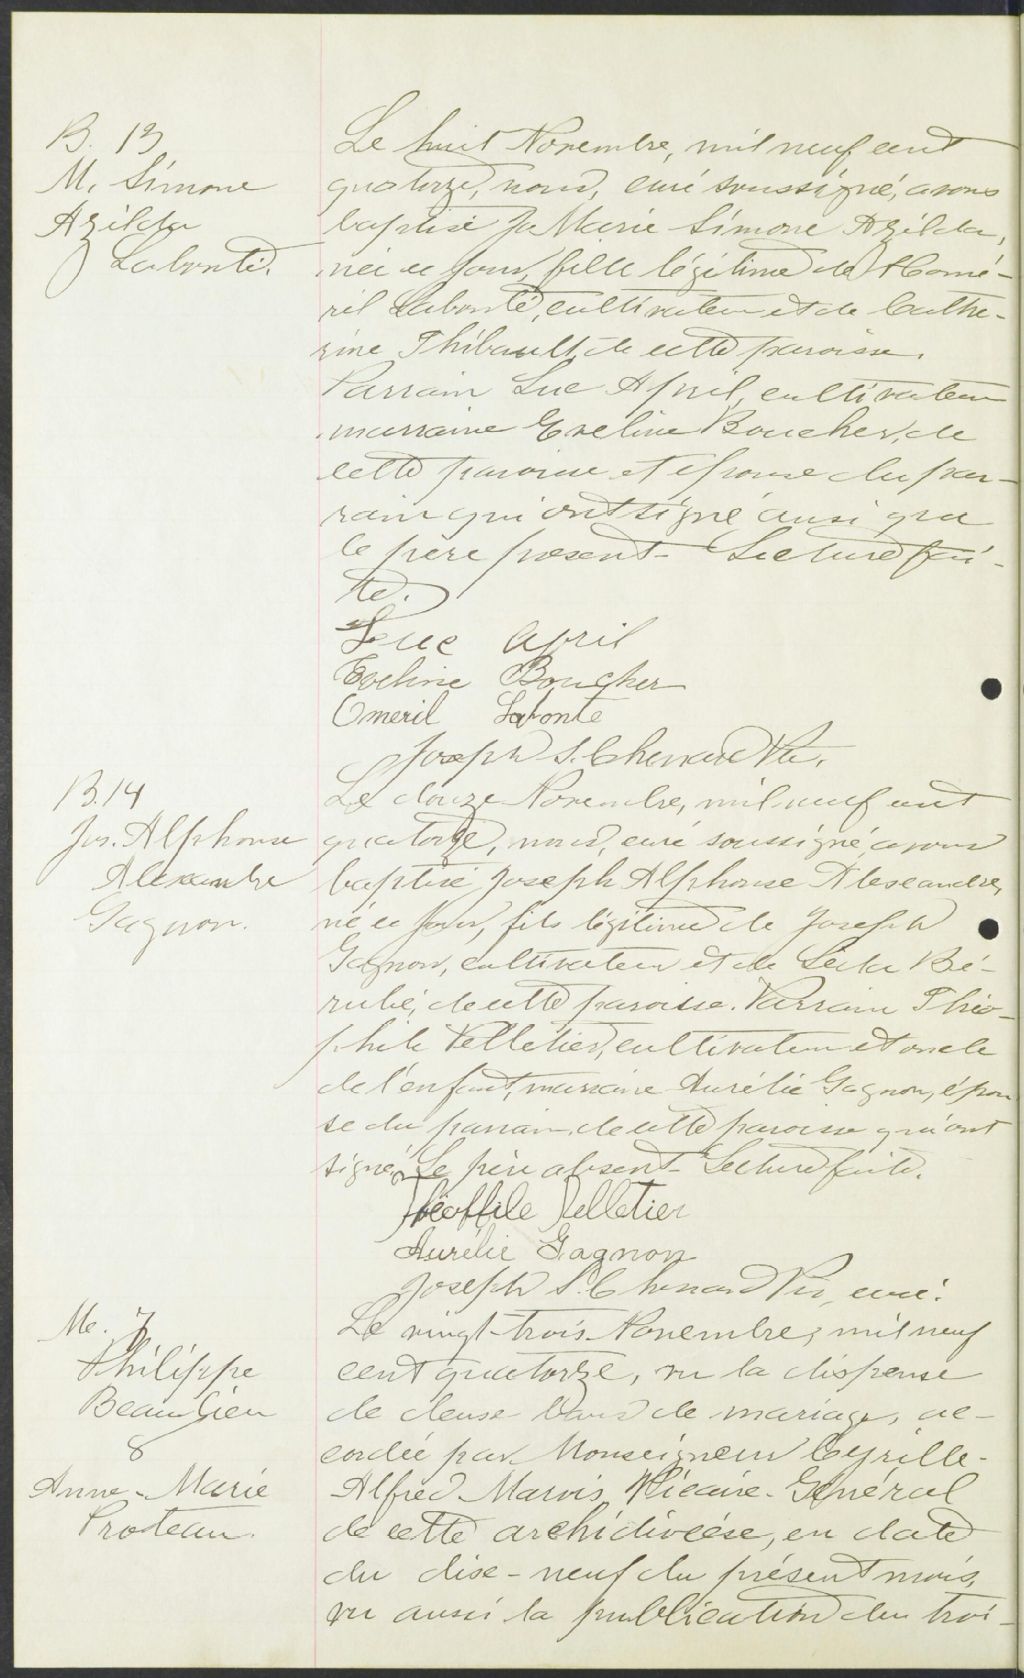 B. 13
M. Simone
Azilda
Labonté.
Le huit Novembre, mil neuf cent
quatorze, nous, curé soussigné, avons
baptisé Marie Simone Azilda,
née ce jour, fille légitime de Homé-
ril Labonté, cultivateur et de Cathe-
rine Thibault, de cette paroisse.
Parrain Luc April, cultivateur
marraine Eveline Boucher, de
cette paroisse et épouse du par-
rain qui ont signé ainsi que
le père présent. Lecture fai-
te.
Luc April
Eveline Boucher
Omeril Labonte
Joseph S. Chenard Ptr.
B. 14
Jos. Alphonse
Alexandre
Gagnon.
Le douze Novembre, mil neuf cent
quatorze, nous, curé soussigné, avons
baptisé Joseph Alphonse Alexandre,
né ce jour, fils légitime de Joseph
Gagnon, cultivateur et de Léda Bé-
rubé, de cette paroisse. Parrain Théo-
phile Pelletier, cultivateur et oncle
de l'enfant, marraine Aurélie Gagnon, épou
se du parrain, de cette paroisse qui ont
signé. Le père absent. Lecture faite.
Théoffile Pelletier
Aurélie Gagnon
Joseph S. Chenard Ptr, curé.
M. 7
Philippe
Beaulieu
&
Anne-Marie
Proteau.
Le vingt-trois Novembre, mil neuf
cent quatorze, vu la dispense
de deux bans de mariage, ac-
cordée par Monseigneur Cyrille-
Alfred Marois, Vicaire-Général
de cette archidiocèse, en date
du dix-neuf du présent mois,
vu aussi la publication du troi-